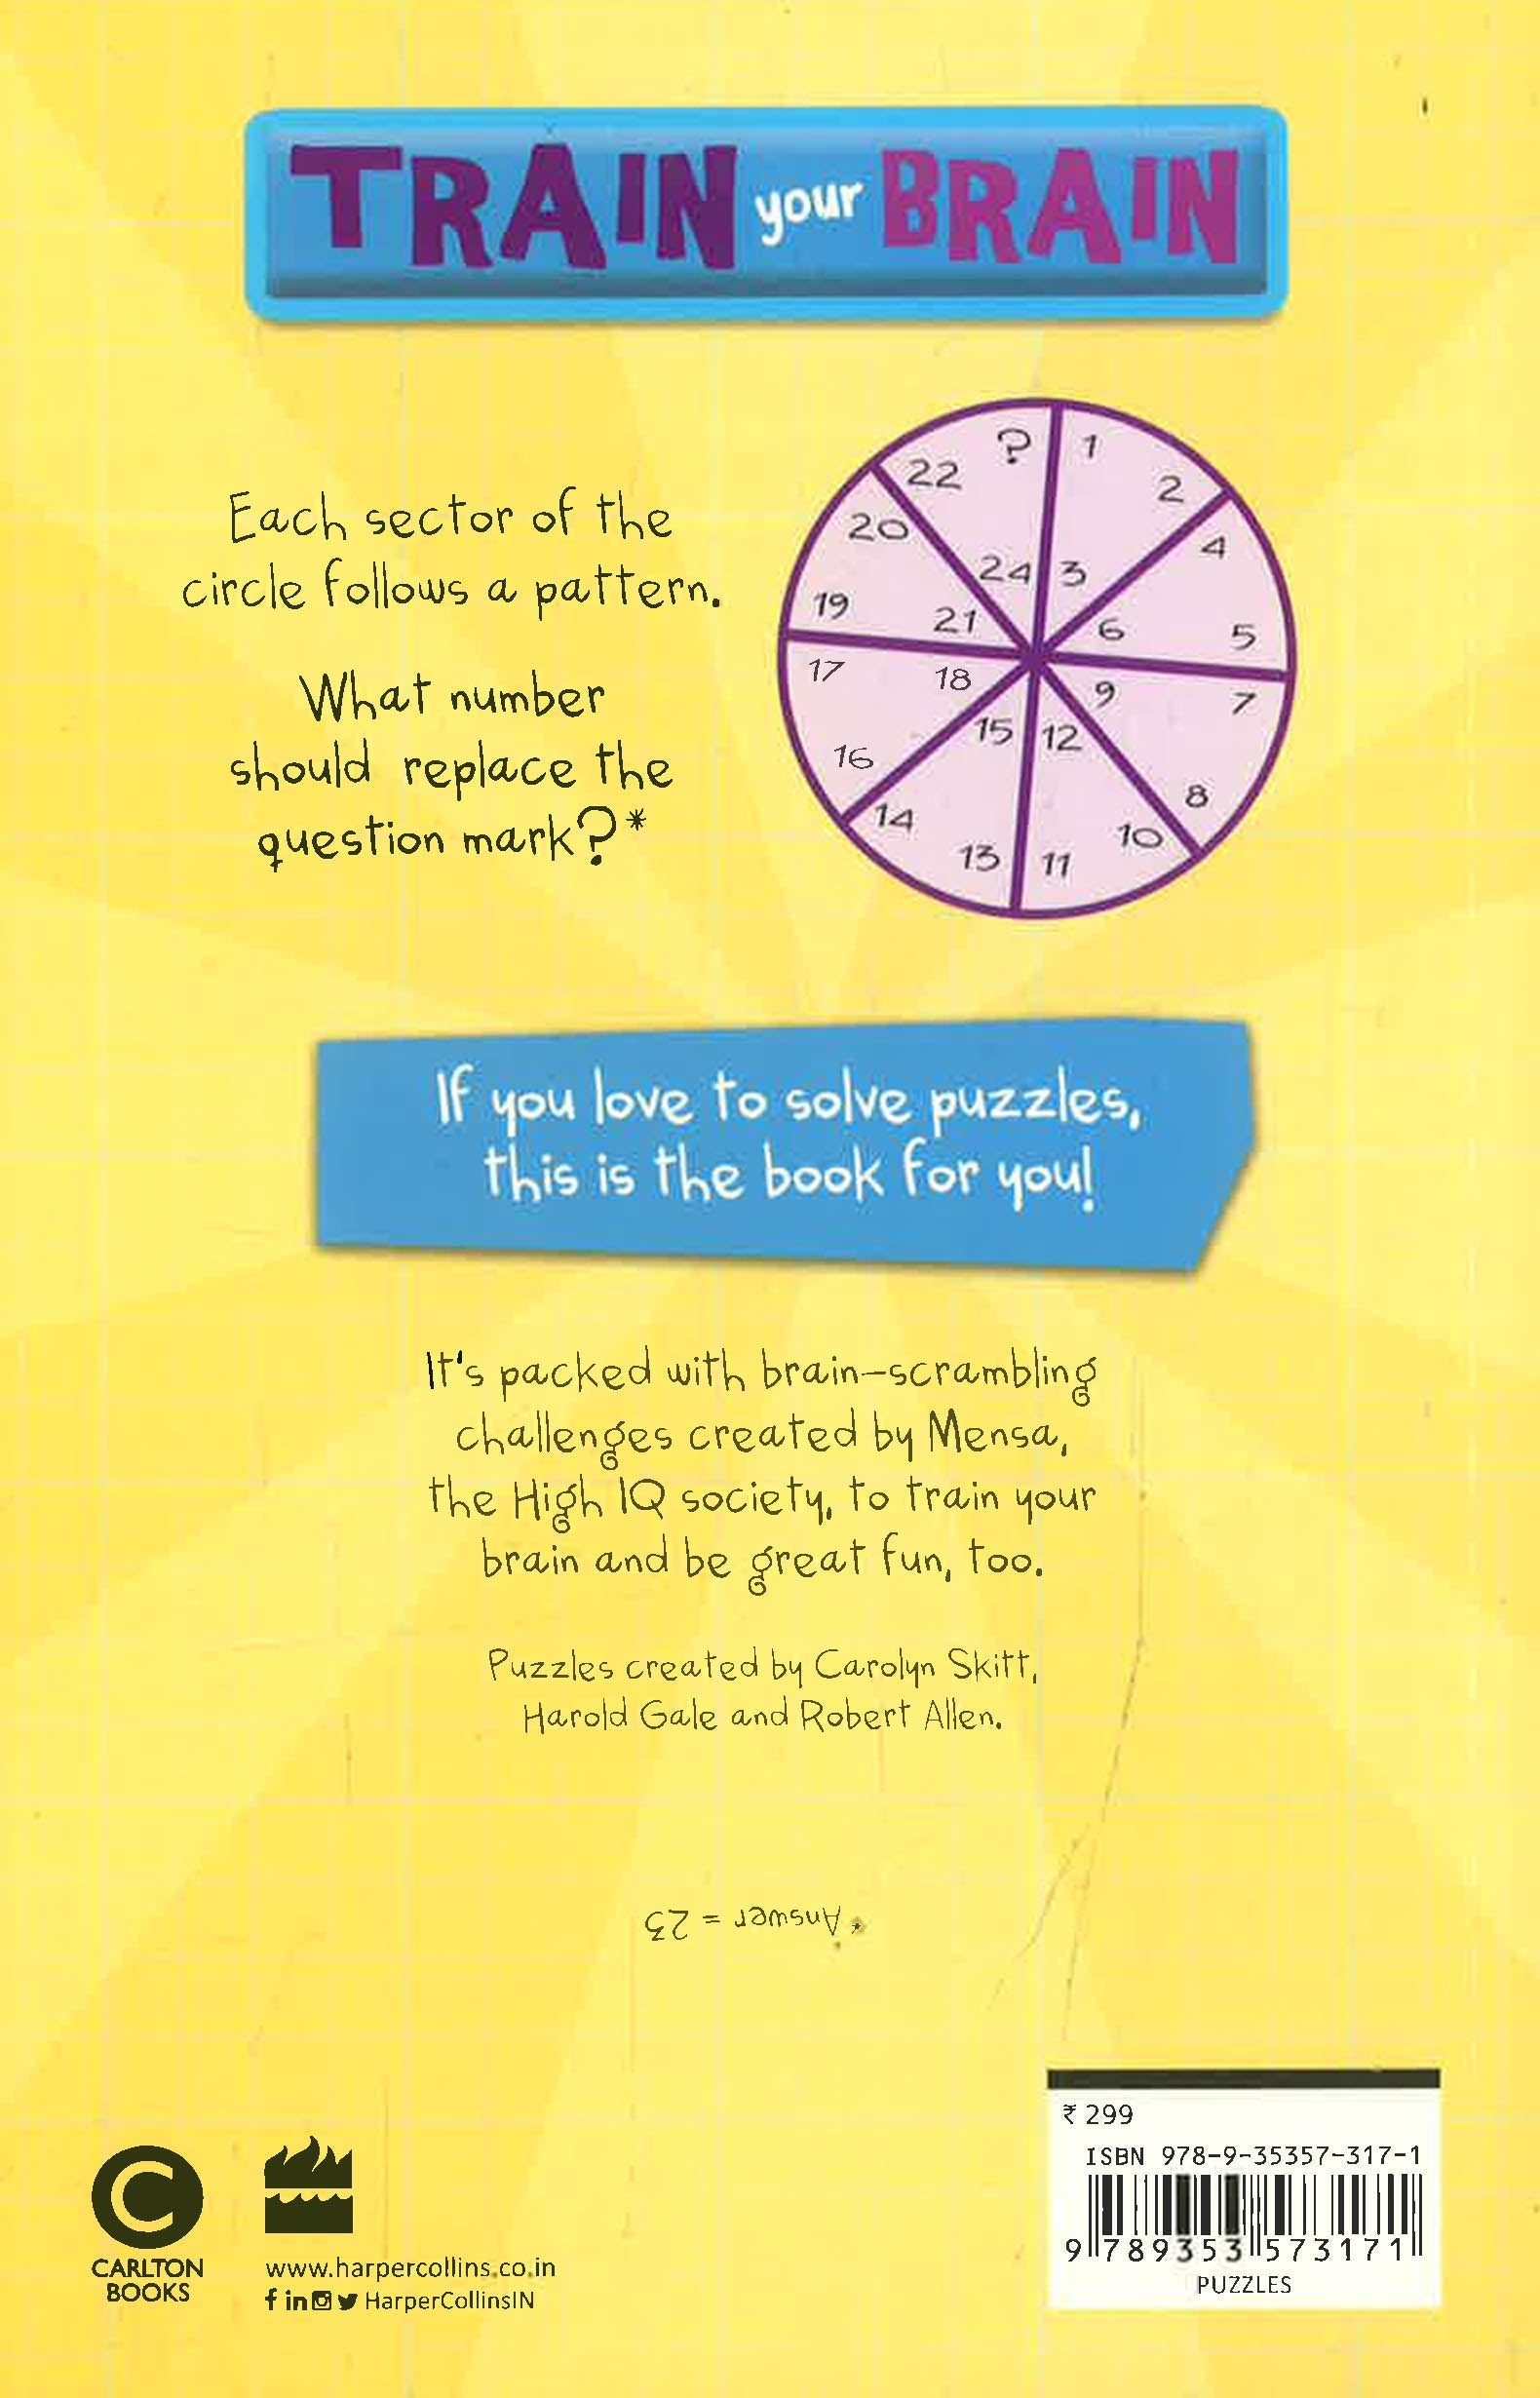 TRAIN your BRAIN
Each sector of the
circle follows a pattern.
What number
should replace the
question mark?*
? 1
22 2
20 4
24 3
19 21 6 5
17 18 9 7
15 12
16 8
14 10
13 11
If you love to solve puzzles,
this is the book for you!
It's packed with brain-scrambling
challenges created by Mensa,
the High IQ society, to train your
brain and be great fun, too.
Puzzles created by Carolyn Skitt,
Harold Gale and Robert Allen.
* Answer = 23
₹ 299
ISBN 978-9-35357-317-1
9 789353 573171
PUZZLES
C
CARLTON
BOOKS
www.harpercollins.co.in
f in HarperCollinsIN